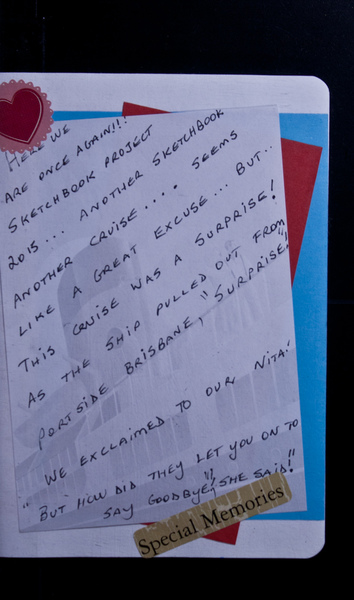 HERE WE
ARE ONCE AGAIN!!!
SKETCHBOOK PROJECT
2015... ANOTHER SKETCHBOOK
ANOTHER CRUISE.... SEEMS
LIKE A GREAT EXCUSE... BUT..
THIS CRUISE WAS A SURPRISE!
AS THE SHIP PULLED OUT FROM
PORTSIDE BRISBANE, "SURPRISE!!"
WE EXCLAIMED TO OUR NITA.
"BUT HOW DID THEY LET YOU ON TO
SAY GOODBYE?", SHE SAID!"
Special Memories